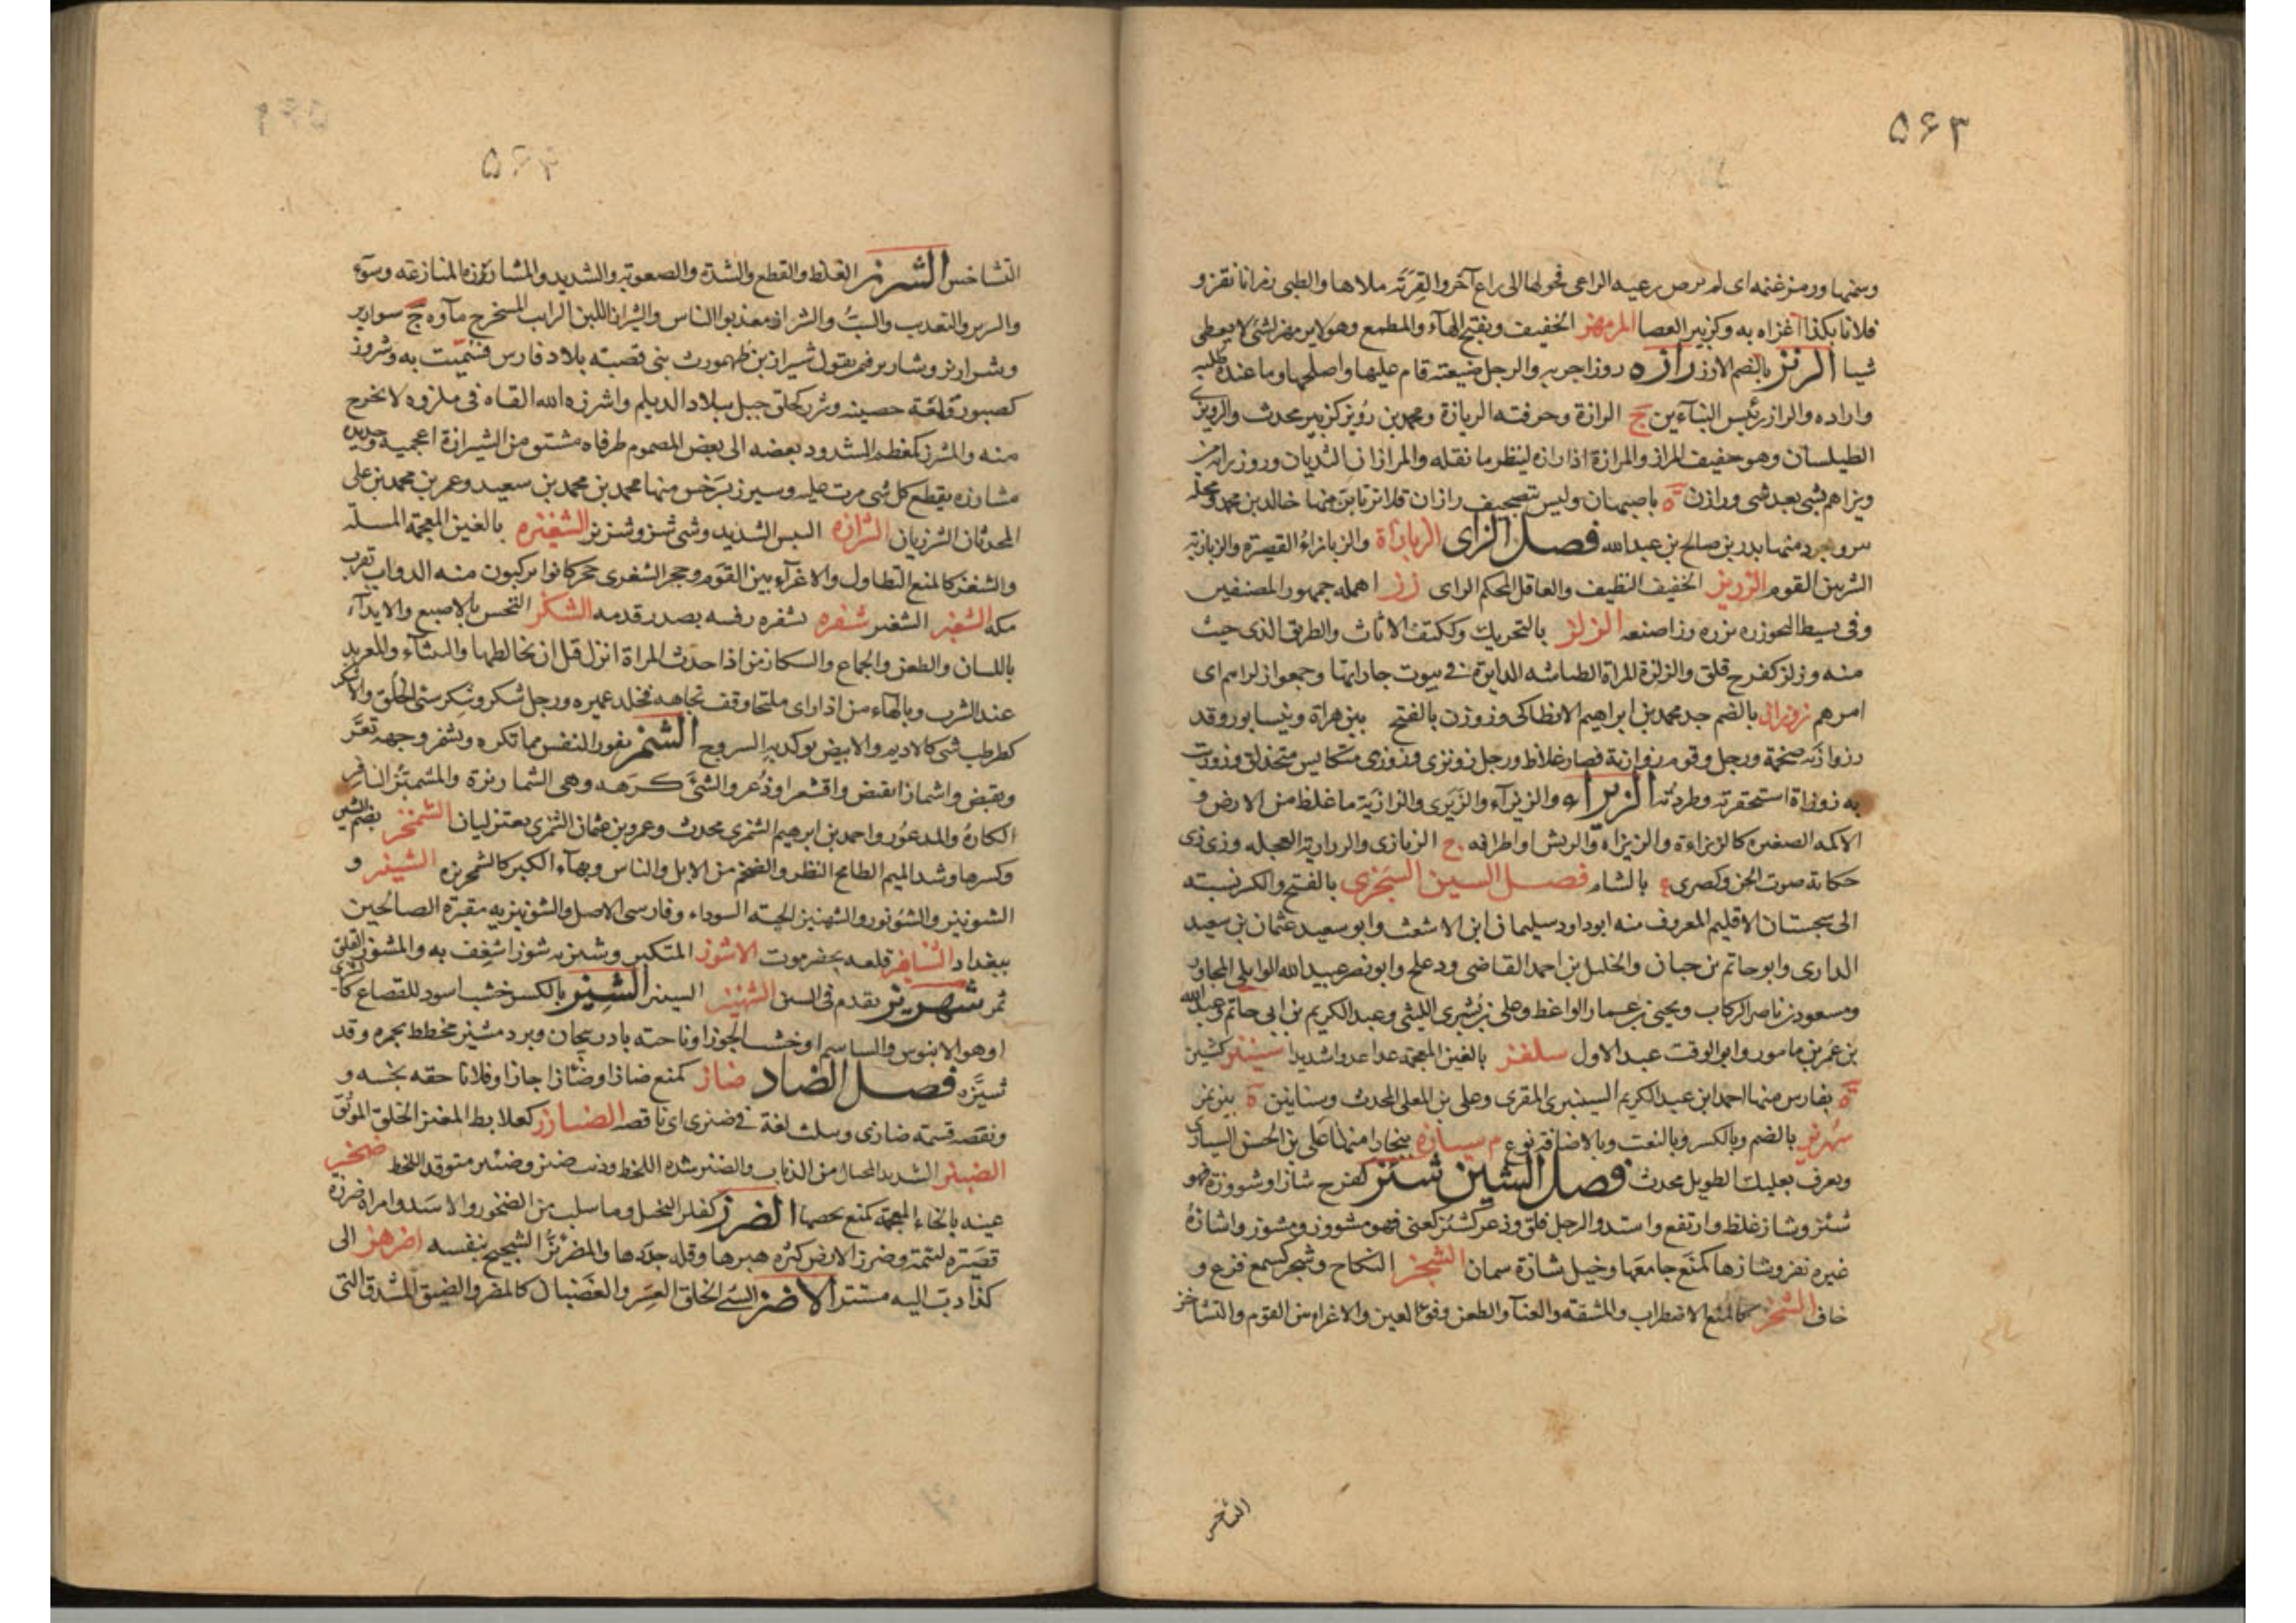 ۵۶۳
وسمنها ورمز غنمه ای لم یرض رعیه الراعی فحولها الی راع آخر والقربة ملاها والظبی رمزانا نقز و
فلانا بکذا اغراه به وکزبیر العصا المرمهز الخفیف وبفتح الهاء والمطمع وهو لا یرمهز لشئ لا یعطی
شیا الرنز بالضم الارز رازه روزا جربه والرجل ضیعته قام علیها واصلحها وما عنده طلبه
واراده والراز رئیس البنآءین ج الرازة وحرفته الریازة ومحمد بن رویز کزبیر محدث والرویزی
الطیلسان وهو خفیف المراز والمرازة اذا رازه لینظر ما نقله والمرازان الثدیان وروز رایه
ویزاهم بشی بعد شی ورازان ة باصبهان ولیس بتصحیف رازان قلانریابن منها خالد بن محمد ومحلة
ببروجرد منها بدر بن صالح بن عبدالله فصل الزای الزبازاة والزبازاءُ القصیرة والزبازیة
الشر بین القوم الزریز الخفیف النظیف والعاقل المحکم الرای زز اهمله جمهور المصنفین
وفی بسیط النحو ززه یززه وزا صفعه الزلز بالتحریک وککتف الاثاث والطریق الذی جیت
منه وزلز کفرح قلق والزلزة المراة الطیاشه الدایرة فی بیوت جاراتها وجمعوا زلزاهم ای
امرهم زوزان بالضم جد محمد بن ابراهیم الانطاکی وزوزن بالفتح بین هراة ونیسابور وقد
رزوازیة ضخمة ورجل وقوم زوازیة قصار غلاظ ورجل زونزی وزوزی متکایس متحذلق وزوزت
به زوزاة استحقرته وطردته الزیزاء والزیزآء والزیزی والزازیة ما غلظ من الارض و
الاکمه الصغیره کالزیزاءة والزیزاه والریش او اطرافه ج الزیازی والزوازیة العجله وزی زی
حکایة صوت الجن وکصری ع بالشام فصل السین السجزی بالفتح والکسر نسبته
الی سجستان الاقلیم المعروف منه ابو داود سلیمان ابن الاشعث وابو سعید عثمان بن سعید
الداری وابو حاتم بن حبان والخلیل بن احمد القاضی ودعلج وابو نصر عبیدالله الوایلی المجاور
ومسعود بن ناصر الرکاب ویحیی بن عمار الواعظ وعلی بن بشری اللیثی وعبدالکریم بن ابی حاتم وعبدالله
بن عمر بن مامور وابو الوقت عبدالاول سلغز بالغین المعجمة عدا عدوا شدیدا سینیز کشین
ة بفارس منها احمد ابن عبدالکریم السینیزی المقری وعلی بن المعلی المحدث وسنابین ة بین یزد
سهریز بالضم وبالکسر وبالنعت وبالاضافة نوع م سیازه ببخارا منها علی بن الحسن السیازی
ویعرف بعلیک الطویل محدث فصل الشین شئز کفرح شازا وشووزة فهو
شئز وشاز غلظ وارتفع واشتد والرجل قلق وذعر کشئز کعنی فهو مشووز ومشوز واشازهُ
غیره نفز وشازها کمنع جامعها وخیل شازة سمان الشجز النکاح وشجز کسمع فزع و
خاف الشخز کالمنع الاضطراب والمشقه والعنآ والطعن وفقؤ العین والاغراء بین القوم والتشاخز
التشاخس
۵۶۴
التشاخس الشرز الغلظ والقطع والشدة والصعوبة والشدید والمشارزة المنازعة وسوء
والشرز والتعذیب والسب والشراز معذبوا الناس والشراز اللبن الرایب المستخرج ماوه ج شواریز
وشراریز وشاریز فمن یقول شیراز بن طهمورث بنی قصبته بلاد فارس فسمیت به وشروز
کصبور قلعة حصینه وشرز کحلق جبل ببلاد الدیلم واشرزه الله القاه فی ملزوه لا یخرج
منه والمشرز کمعظم المشدود بعضه الی بعض المضموم طرفاه مشتق من الشیرازة اعجمیه وحدیده
مشارزه یقطع کل شی مرت علیه وسیرز بسرخس منها محمد بن محمد بن سعید وعمر بن محمد بن علی
المحدثان الشرزیان الشزازه الیبس الشدید وشی شز وشزیز الشغیزه بالغین المعجمة المسلّة
والشغز کالمنع التطاول والاغراء بین القوم وحجر الشغزی حجر کانوا یرکبون منه الدواب بقرب
مکه الشغبز الشغبر شفزه شفزه رفسه بصدر قدمه الشکز النخس بالاصبع والایذآء
باللسان والطعن والجماع والشکاز من اذا حدث المراة انزل قبل ان یخالطها والنساء والمعربد
عند الشرب وبالهاء من اذا رای ملتحا وقف تجاهه فخلد عمیره ورجل شکز وشکز سئ الخلق والاشکز
کطرطب شی کالادیم والابیض یوکد به السروج الشمز نفور النفس مما تکره وشمز وجهه تمعّر
وتقبض واشماز انقبض واقشعر او ذُعر والشئ کرهه وهی الشمازیزة والمشمئز النافر
الکارهُ والمدعوُر واحمد بن ابرهیم الشمزی محدث وعمرو بن عثمان الشمزی معتزلیان الشمخز بضم الشین
وکسرها وشد المیم الطامح النظر والضخم من الابل والناس وبهاء الکبر کالشمخریزه الشینز و
الشونیز والشونوز والشهنیز الحبة السوداء وفارسی الاصل والشونیزیه مقبرة الصالحین
ببغداد الشنافز قلعه بحضرموت الاشوز المتکبر وشیزیه شوزا شغف به والمشوز القلق
تمر شهریز تقدم فی السین الشهنیز السینز الشیز بالکسر خشب اسود للقصاع کا
او هو الابنوس والساسم او خشب الجوز او ناحیة باذربیجان وبرد مشیز مخطط بحمره وقد
شیّزه فصل الضاد ضاز کمنع ضازا وضَازا جازا وفلانا حقه بخسه و
ونقصه قسمة ضازی وسلث لغة فی ضیزی ای ناقصه الضبارز کعلابط المغنز الخلق الموثق
الضبیز الشدید المحتال من الذیاب والضبز شدة اللحظ وذیب ضبز وضبیز متوقد اللحظ ضخز
عینه بالخاء المعجمة کمنع بخصها الضرز کفلز البخیل وما صلب من الصخور والاسد وامراة ضرزة
قصیرة لئیمة وضرز الارض کثرة هبرها وقلة جددها والمضرئز الشحیح بنفسه اضرهز الی
کذا دب الیه مستترا الاضز السئ الخلق العسِر والغضبان کالمضز والضیق الشدق التی